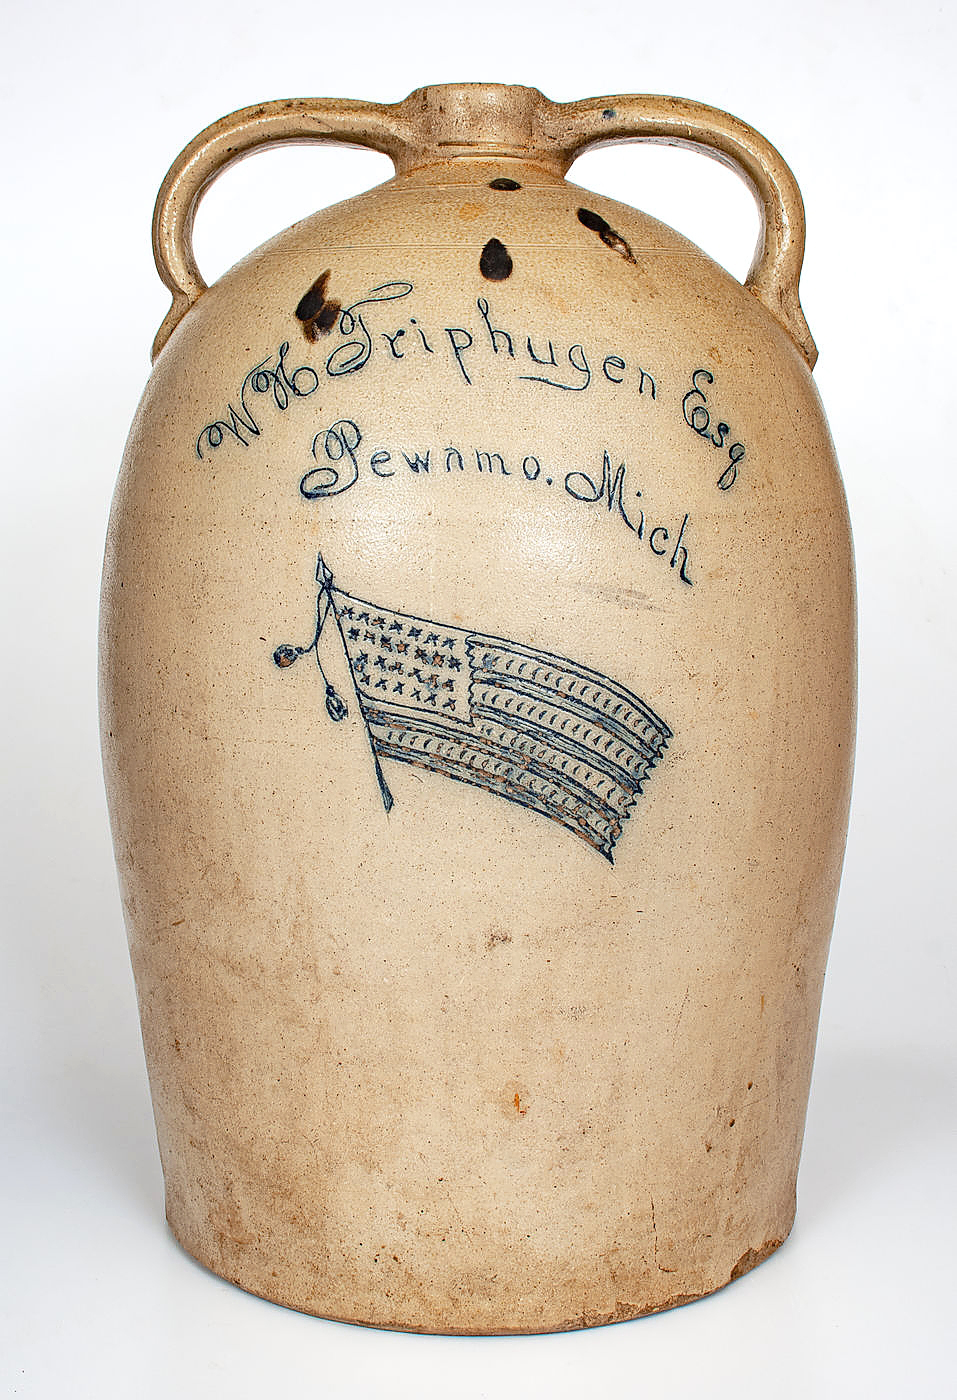 W H Triphugen Esq
Pewnmo. Mich